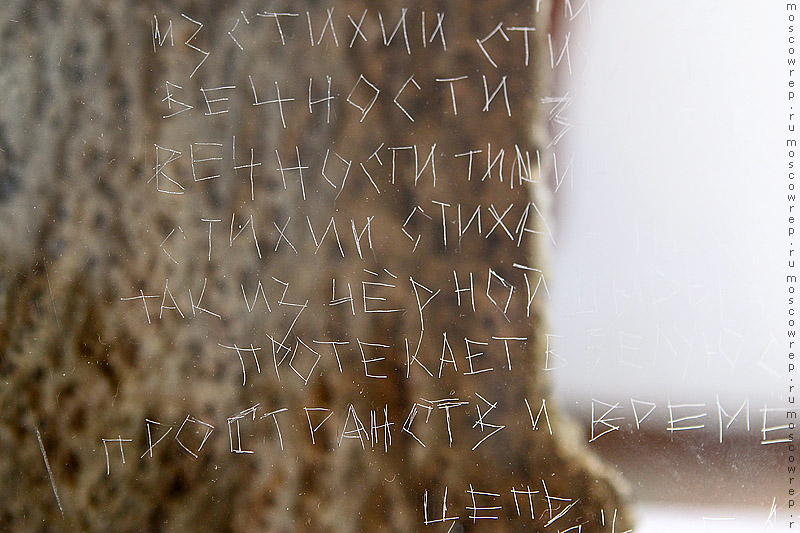 ИЗ СТИХИИ СТИ
ВЕЧНОСТИ В
ВЕЧНОСТИ ТИШИ
СТИХИИ СТИХА
ТАК ИЗ ЧЁРНОЙ
ПРОТЕКАЕТ В
ПРОСТРАНСТВ И ВРЕМЕ
ЦЕПЬ
moscowrep.ru moscowrep.ru moscowrep.ru moscowrep.r